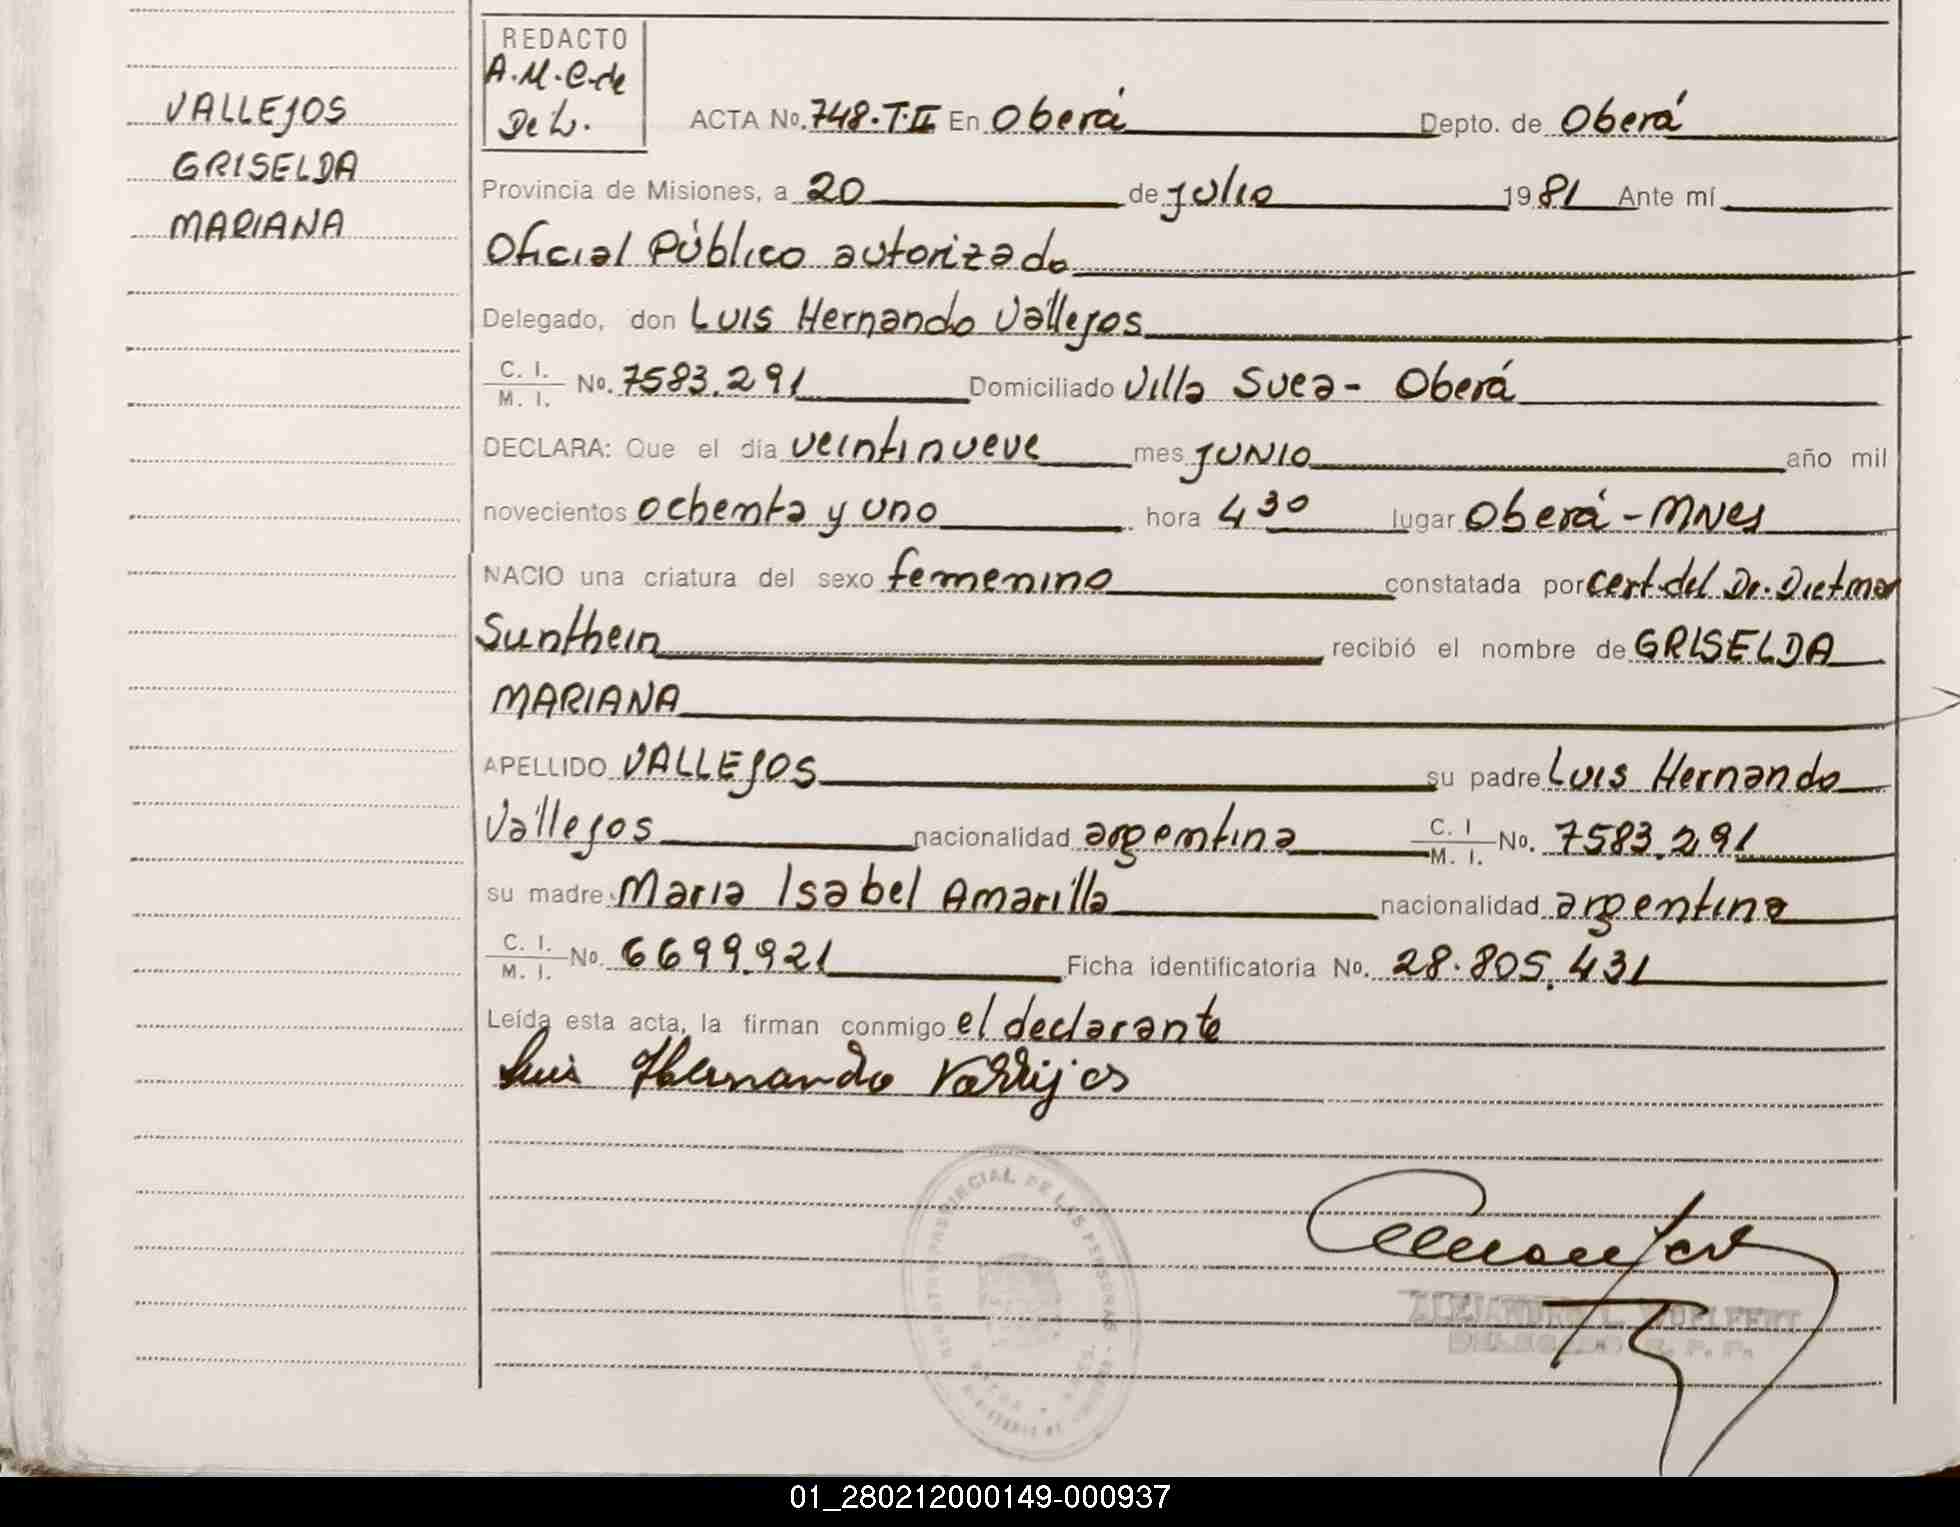 VALLEJOS
GRISELDA
MARIANA
REDACTO
A.M.C. de
De L.
ACTA No. 748.T.II En Oberá Depto. de Oberá
Provincia de Misiones, a 20 de julio 1981 Ante mí
Oficial Público autorizado
Delegado, don Luis Hernando Vallejos
C. I. / M. I. No. 7583.291 Domiciliado Villa Suea - Oberá
DECLARA: Que el día veintinueve mes JUNIO año mil
novecientos ochenta y uno hora 4 30 lugar Oberá - Mnes
NACIO una criatura del sexo femenino constatada por cert. del Dr. Dietmar
Sunthein recibió el nombre de GRISELDA
MARIANA
APELLIDO VALLEJOS su padre Luis Hernando
Vallejos nacionalidad argentina C. I / M. I. No. 7583.291
su madre Maria Isabel Amarilla nacionalidad argentina
C. I. / M. I. No. 6699.921 Ficha identificatoria No. 28.805.431
Leída esta acta, la firman conmigo el declarante
Luis Hernando Vallejos
PROVINCIAL DE LAS PERSONAS
DELEGADO R. P. P.
01_280212000149-000937